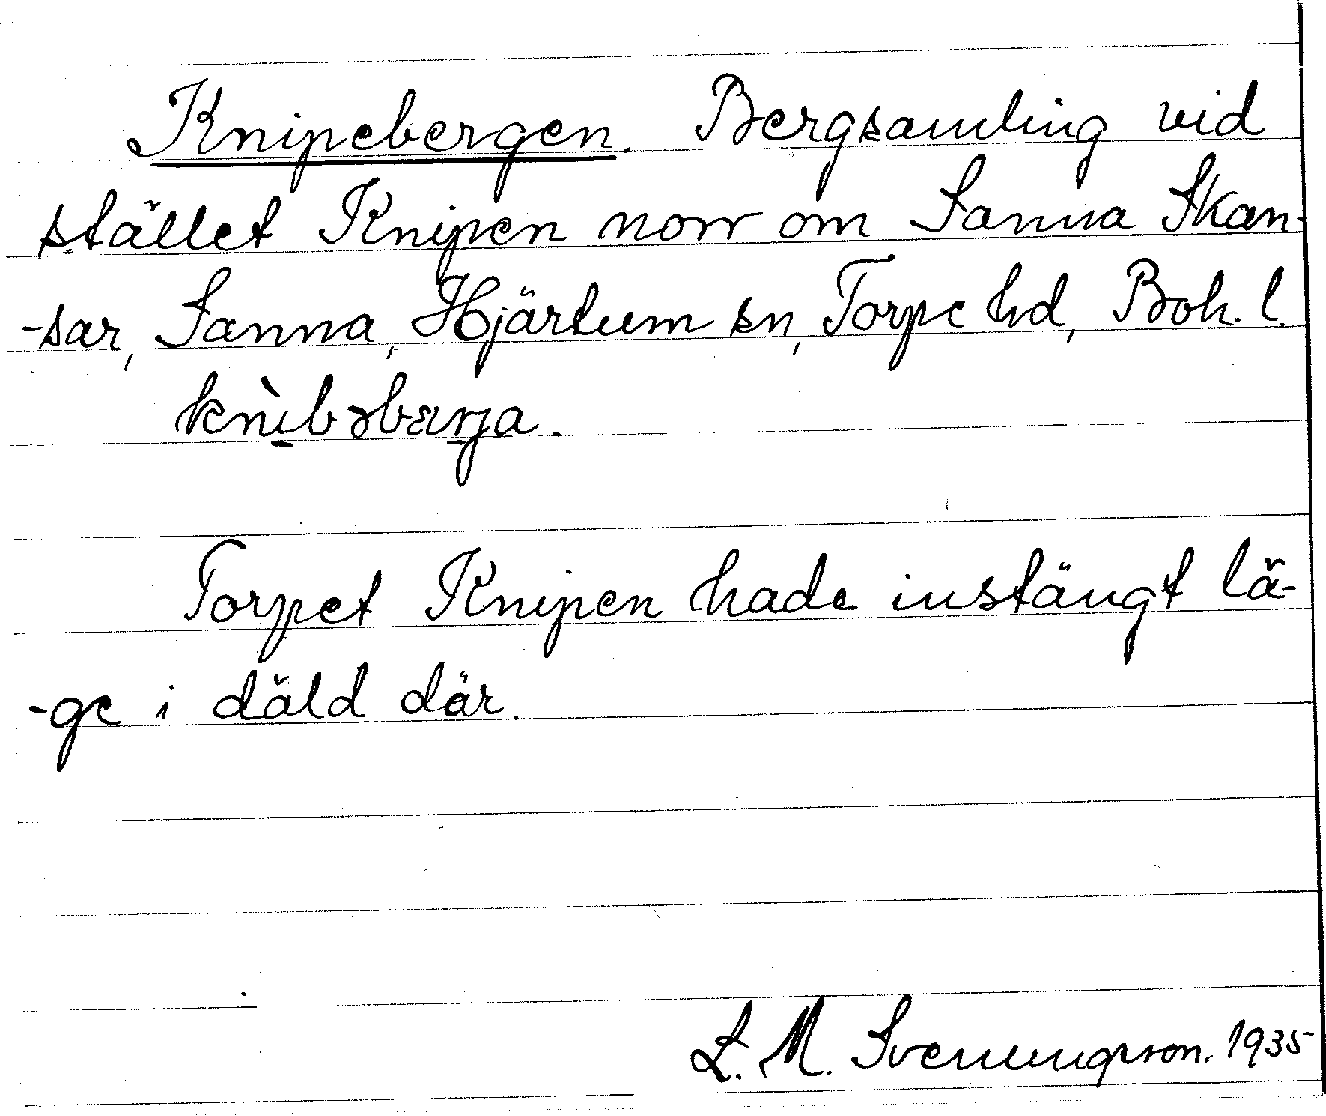 Knipebergen. Bergsamling vid
stället Knipen norr om Sanna Skan-
-sar, Sanna, Hjärtum sn, Torpe hd, Boh. l.
knìbəbærja.
Torpet Knipen hade instängt lä-
-ge i däld där.
L. M. Svenungsson. 1935